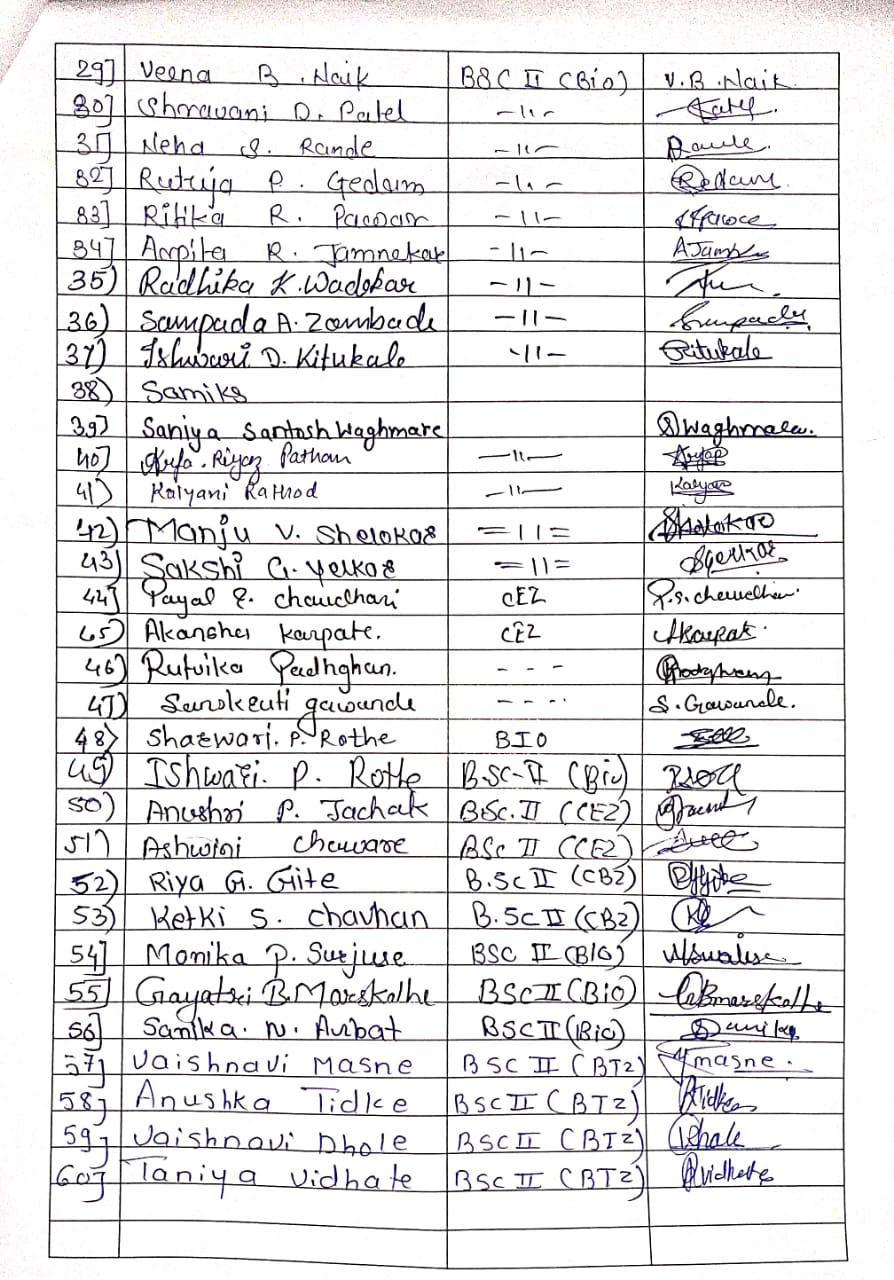 29] Veena B. Naik BSC II (Bio) V.B.Naik
30] Shravani D. Patel -11- Patel
31] Neha S. Rande -11-
32] Rutuja P. Gedam -11-
33] Ritika R. Pawar -11-
34] Arpita R. Jamnekar -11- AJamn
35) Radhika K. Wadokar -11-
36) Sampada A. Zombade -11- Sampada
37) Ishwari D. Kitukale -11- Kitukale
38) Samiks
39) Saniya Santosh Waghmare SWaghmare.
40) Riyaz Pathan -11-
41) Kalyani Rathod -11- Kalyani
42) Manju V. Shelokar =11= Shelokar
43) Sakshi G. Yelkar =11= SYelkar
44] Payal S. Chaudhari CEZ P.S.Chaudhari
45) Akansha Karpate. CEZ AKarpat
46) Rutvika Padhghan. - - -
47) Sanskruti gawande - - - - S. Gawande.
48) Sharwari. P. Rothe BIO
49) Ishwari. P. Rothe B.SC-II (Bio)
50) Anushri P. Jachak B.Sc. II (CEZ)
51) Ashwini Chaware BSc II (CEZ)
52) Riya G. Gite B.Sc II (CBZ)
53) Ketki S. Chavhan B.Sc II (CBZ)
54] Monika P. Surjuse BSC II (BIO)
55] Gayatri B. Marskolhe BSC II (BiO) GBmarskolhe
56] Sanika. N. Ambat BSC II (BiO) Sanika
57] Vaishnavi Masne BSC II (BTZ) masne.
58] Anushka Tidke BSC II (BTZ) ATidke
59] Vaishnavi Dhole BSC II (BTZ) Dhole
60] Taniya Vidhate BSC II (BTZ) Vidhate